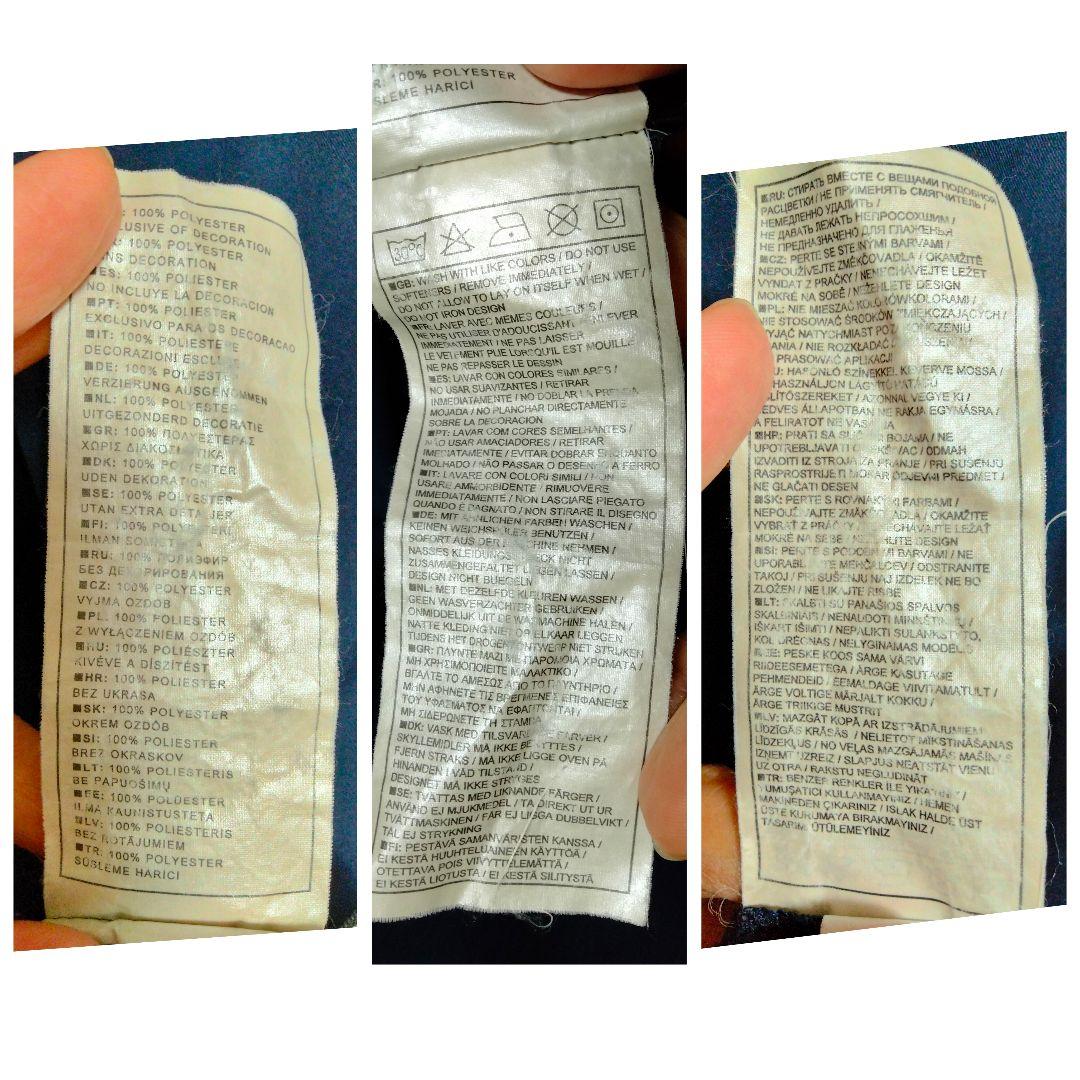 : 100% POLYESTER
EXCLUSIVE OF DECORATION
: 100% POLYESTER
SANS DECORATION
ES: 100% POLIESTER
NO INCLUYE LA DECORACION
PT: 100% POLIESTER
EXCLUSIVO PARA OS DECORACAO
IT: 100% POLIESTERE
DECORAZIONI
DE: 100% POLYESTER
VERZIERUNG AUSGENOMMEN
NL: 100% POLYESTER
UITGEZONDERD DECORATIE
GR: 100% ΠΟΛΥΕΣΤΕΡΑΣ
ΧΩΡΙΣ
DK: 100% POLYESTER
UDEN DEKORATION
SE: 100% POLYESTER
UTAN EXTRA DETALJER
FI: 100% POLYESTERI
ILMAN
RU: 100% ПОЛИЭФИР
БЕЗ ДЕКОРИРОВАНИЯ
CZ: 100% POLYESTER
VYJMA OZDOB
PL: 100% POLIESTER
Z WYŁĄCZENIEM OZDÓB
HU: 100% POLIÉSZTER
KIVÉVE A DÍSZÍTÉST
HR: 100% POLIESTER
BEZ UKRASA
SK: 100% POLYESTER
OKREM OZDÔB
SI: 100% POLIESTER
BREZ OKRASKOV
LT: 100% POLIESTERIS
BE PAPUOŠIMŲ
EE: 100% POLÜESTER
ILMA KAUNISTUSTETA
LV: 100% POLIESTERIS
BEZ ROTĀJUMIEM
TR: 100% POLYESTER
SÜSLEME HARİCİ
R: 100% POLYESTER
SLEME HARİCİ
30°C
GB: WASH WITH LIKE COLORS / DO NOT USE
SOFTENERS / REMOVE IMMEDIATELY /
DO NOT ALLOW TO LAY ON ITSELF WHEN WET /
DO NOT IRON DESIGN
FR: LAVER AVEC MEMES COULEURS /
NE PAS UTILISER D'ADOUCISSANT / ENLEVER
IMMEDIATEMENT / NE PAS LAISSER
LE VETEMENT PLIE LORSQU'IL EST MOUILLE
NE PAS REPASSER LE DESSIN
ES: LAVAR CON COLORES SIMILARES /
NO USAR SUAVIZANTES / RETIRAR
INMEDIATAMENTE / NO DOBLAR LA PRENDA
MOJADA / NO PLANCHAR DIRECTAMENTE
SOBRE LA DECORACION
PT: LAVAR COM CORES SEMELHANTES /
NÃO USAR AMACIADORES / RETIRAR
IMEDIATAMENTE / EVITAR DOBRAR ENQUANTO
MOLHADO / NÃO PASSAR O DESENHO A FERRO
IT: LAVARE CON COLORI SIMILI / NON
USARE AMMORBIDENTE / RIMUOVERE
IMMEDIATAMENTE / NON LASCIARE PIEGATO
QUANDO È BAGNATO / NON STIRARE IL DISEGNO
DE: MIT ÄHNLICHEN FARBEN WASCHEN /
KEINEN WEICHSPÜLER BENUTZEN /
SOFORT AUS DER MASCHINE NEHMEN /
NASSES KLEIDUNGSSTÜCK NICHT
ZUSAMMENGEFALTET LIEGEN LASSEN /
DESIGN NICHT BUEGELN
NL: MET DEZELFDE KLEUREN WASSEN /
GEEN WASVERZACHTER GEBRUIKEN /
ONMIDDELIJK UIT DE WASMACHINE HALEN /
NATTE KLEDING NIET OP ELKAAR LEGGEN
TIJDENS HET DROGEN / ONTWERP NIET STRIJKEN
GR: ΠΛΥΝΤΕ ΜΑΖΙ ΜΕ ΠΑΡΟΜΟΙΑ ΧΡΩΜΑΤΑ /
ΜΗ ΧΡΗΣΙΜΟΠΟΙΕΙΤΕ ΜΑΛΑΚΤΙΚΟ /
ΒΓΑΛΤΕ ΤΟ ΑΜΕΣΩΣ ΑΠΟ ΤΟ ΠΛΥΝΤΗΡΙΟ /
ΜΗΝ ΑΦΗΝΕΤΕ ΤΙΣ ΒΡΕΓΜΕΝΕΣ ΕΠΙΦΑΝΕΙΕΣ
ΤΟΥ ΥΦΑΣΜΑΤΟΣ ΝΑ ΕΦΑΠΤΟΝΤΑΙ /
ΜΗ ΣΙΔΕΡΩΝΕΤΕ ΤΗ ΣΤΑΜΠΑ
DK: VASK MED TILSVARENDE FARVER /
SKYLLEMIDLER MÅ IKKE BENYTTES /
FJERN STRAKS / MÅ IKKE LIGGE OVEN PÅ
HINANDEN I VÅD TILSTAND /
DESIGNET MÅ IKKE STRYGES
SE: TVÄTTAS MED LIKNANDE FÄRGER /
ANVÄND EJ MJUKMEDEL / TA DIREKT UT UR
TVÄTTMASKINEN / FÅR EJ LIGGA DUBBELVIKT /
TÅL EJ STRYKNING
FI: PESTÄVÄ SAMANVÄRISTEN KANSSA /
EI KESTÄ HUUHTELUAINEEN KÄYTTÖÄ /
OTETTAVA POIS VIIVYTTELEMÄTTÄ /
EI KESTÄ LIOTUSTA / EI KESTÄ SILITYSTÄ
RU: СТИРАТЬ ВМЕСТЕ С ВЕЩАМИ ПОДОБНОЙ
РАСЦВЕТКИ / НЕ ПРИМЕНЯТЬ СМЯГЧИТЕЛЬ /
НЕМЕДЛЕННО УДАЛИТЬ /
НЕ ДАВАТЬ ЛЕЖАТЬ НЕПРОСОХШИМ /
НЕ ПРЕДНАЗНАЧЕНО ДЛЯ ГЛАЖЕНЬЯ
CZ: PERTE SE STEJNÝMI BARVAMI /
NEPOUŽÍVEJTE ZMĚKČOVADLA / OKAMŽITĚ
VYNDAT Z PRAČKY / NENECHÁVEJTE LEŽET
MOKRÉ NA SOBĚ / NEŽEHLETE DESIGN
PL: NIE MIESZAĆ KOLORÓW
NIE STOSOWAĆ ŚRODKÓW ZMIĘKCZAJĄCYCH /
WYJĄĆ NATYCHMIAST PO ZAKOŃCZENIU
PRANIA / NIE ROZKŁADAĆ
PRASOWAĆ APLIKACJI
HU: HASONLÓ SZÍNEKKEL KEVERVE MOSSA /
HASZNÁLJON LÁGYÍTÓ HATÁSÚ
ÖBLÍTŐSZEREKET / AZONNAL VEGYE KI /
NEDVES ÁLLAPOTBAN NE RAKJA EGYMÁSRA /
A FELIRATOT NE VASALJA
HR: PRATI SA SLIČNIM BOJAMA / NE
UPOTREBLJAVATI OMEKŠIVAČ / ODMAH
IZVADITI IZ STROJA ZA PRANJE / PRI SUŠENJU
MOKAR ODJEVNI PREDMET /
NE GLAČATI DESEN
SK: PERTE S ROVNAKÝMI FARBAMI /
NEPOUŽÍVAJTE ZMÄKČOVADLÁ / OKAMŽITE
VYBRAŤ Z PRÁČKY / NENECHÁVAJTE LEŽAŤ
MOKRÉ NA SEBE / NEŽEHLITE DESIGN
SI: PERITE S PODOBNIMI BARVAMI / NE
UPORABLJAJTE MEHČALCEV / ODSTRANITE
TAKOJ / PRI SUŠENJU NAJ IZDELEK NE BO
ZLOŽEN / NE LIKAJTE RISBE
LT: SKALBTI SU PANAŠIOS SPALVOS
SKALBINIAIS / NENAUDOTI MINKŠTIKLIŲ /
IŠKART IŠIMTI / NEPALIKTI SULANKSTYTO,
KOL DRĖGNAS / NELYGINAMAS MODELIS
EE: PESKE KOOS SAMA VÄRVI
RIIDEESEMETEGA / ÄRGE KASUTAGE
PEHMENDEID / EEMALDAGE VIIVITAMATULT /
ÄRGE VOLTIGE MÄRJALT KOKKU /
ÄRGE TRIIKIGE MUSTRIT
LV: MAZGĀT KOPĀ AR IZSTRĀDĀJUMIEM
LĪDZĪGĀS KRĀSĀS / NELIETOT MĪKSTINĀŠANAS
LĪDZEKĻUS / NO VEĻAS MAZGĀJAMĀS MAŠĪNAS
IZŅEMT UZREIZ / SLAPJUS NEATSTĀT VIENU
UZ OTRA / RAKSTU NEGLUDINĀT
TR: BENZER RENKLER İLE YIKAYINIZ /
YUMUŞATICI KULLANMAYINIZ / HEMEN
MAKİNEDEN ÇIKARINIZ / ISLAK HALDE ÜST
ÜSTE KURUMAYA BIRAKMAYINIZ /
TASARIM ÜTÜLEMEYİNİZ